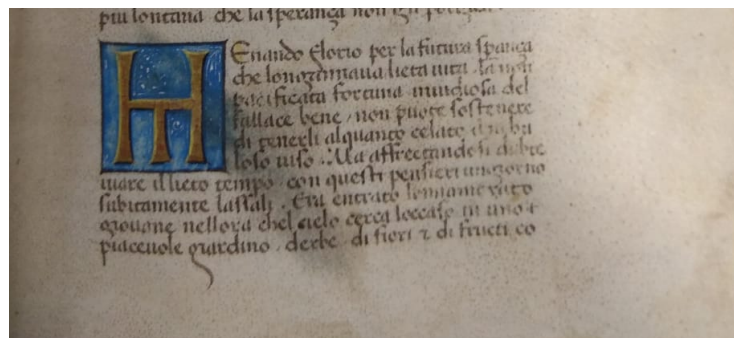 piu lontana che la speranza non
MEnando Florio per la futura speranza
che longannaua lieta uita . la non
pacificata fortuna inuidiosa del
fallace bene . non puote sostenere
di tenerli alquanto celato il nebu
loso uiso . Ma affrectandosi dabre
uiare il lieto tempo . con questi pensieri un giorno
subitamente lassali . Era entrato lonnamorato
giouane nellora chel cielo cerca loccaso in uno
piaceuole giardino . derbe . di fiori ⁊ di fructi co